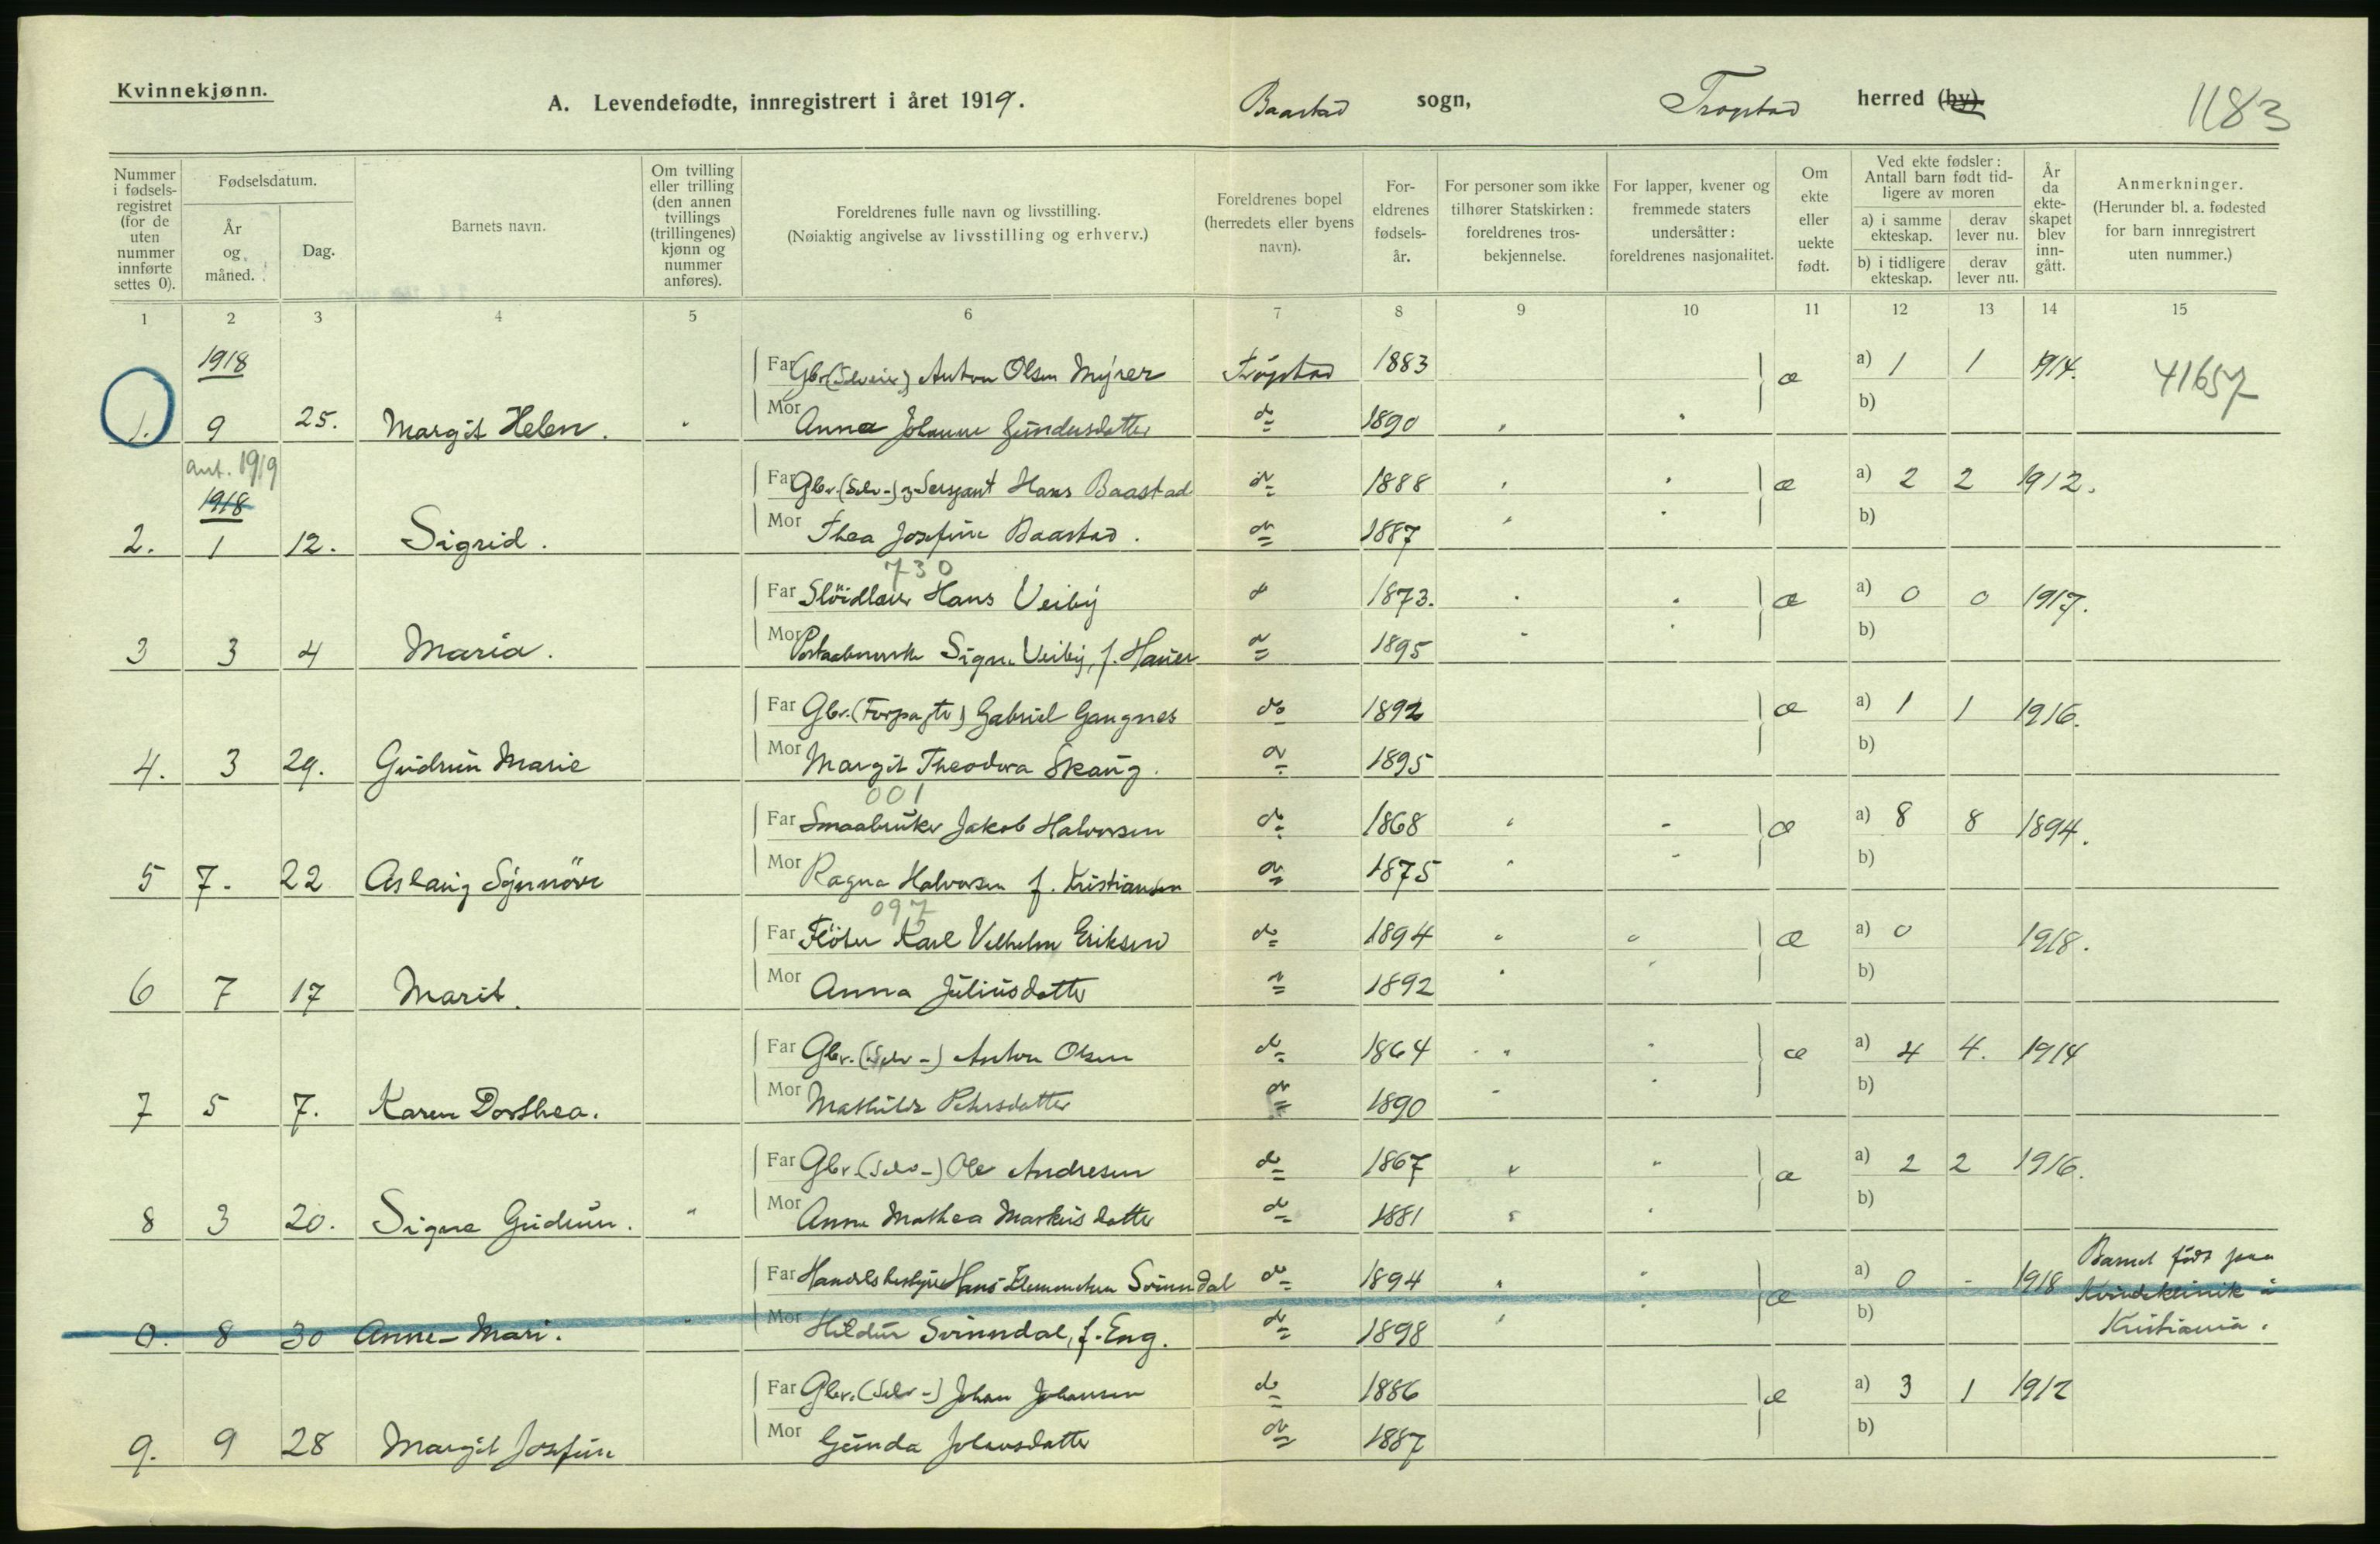 Kvinnekjønn.
A. Levendefødte, innregistrert i året 1919. Baastad sogn, Trøgstad herred (by).
1183
Nummer i fødsels-registret (for de uten nummer innførte settes 0).
Fødselsdatum.
År og måned.
Dag.
Barnets navn.
Om tvilling eller trilling (den annen tvillings (trillingenes) kjønn og nummer anføres).
Foreldrenes fulle navn og livsstilling.
(Nøiaktig angivelse av livsstilling og erhverv.)
Foreldrenes bopel (herredets eller byens navn).
For-eldrenes fødsels-år.
For personer som ikke tilhører Statskirken: foreldrenes tros-bekjennelse.
For lapper, kvener og fremmede staters undersåtter: foreldrenes nasjonalitet.
Om ekte eller uekte født.
Ved ekte fødsler: Antall barn født tid-ligere av moren
a) i samme ekteskap. derav lever nu.
b) i tidligere ekteskap. derav lever nu.
År da ekte-skapet blev inn-gått.
Anmerkninger.
(Herunder bl. a. fødested for barn innregistrert uten nummer.)
1 2 3 4 5 6 7 8 9 10 11 12 13 14 15
1918 Far Gbr. Anton Olsen Myrer Trøgstad 1883 æ a) 1 1 1914. 41657
1. 9 25. Margit Helen. Mor Anna Johanne Gundersdatter do 1890 b)
ant. 1919
1918 Far Gbr. (Selv-) og Sersjant Hans Baastad do 1888 æ a) 2 2 1912.
2. 1 12. Sigrid. Mor Thea Josefine Baastad. do 1887 b)
730
Far Slöidlærer Hans Veiby do 1873. æ a) 0 0 1917.
3 3 4 Maria. Mor Signe Veiby, f. do 1895 b)
Far Gbr. (Forpagter) Gabriel Gangnes do 1892 æ a) 1 1 1916.
4. 3 29. Gudrun Marie Mor Margit Theodora Skaug. do 1895 b)
001
Far Smaabruker Jakob Halvorsen do 1868 æ a) 8 8 1894.
5 7. 22 Aslaug Synnöve Mor Ragna Halvorsen f. Kristiansen do 1875 b)
097
Far Flöter Karl Vilhelm Eriksen do 1894 æ a) 0 1918.
6 7 17 Marit. Mor Anna Juliusdatter do 1892 b)
Far Gbr. (Selv-) Anton Olsen do 1864 æ a) 4 4. 1914
7 5 7. Karen Dorthea. Mor Mathilde Petersdatter do 1890 b)
Far Gbr. (Selv-) Ole Andresen do 1867 æ a) 2 2 1916.
8 3 20. Signe Gudrun. Mor Anne Mathea Markusdatter do 1881 b)
Far Handelsbestyrer Hans Klemmetsen Svinndal do 1894 æ a) 0 - 1918 Barnet født paa
Kvindeklinik i
0. 8 30 Anne-Mari. Mor Hildur Svinndal, f. Eng. do 1898 b) Kristiania.
Far Gbr. (Selv-) Johan Johansen do 1886 æ a) 3 1 1912
9. 9 28 Margit Josefine Mor Gunda Johansdatter do 1887 b)